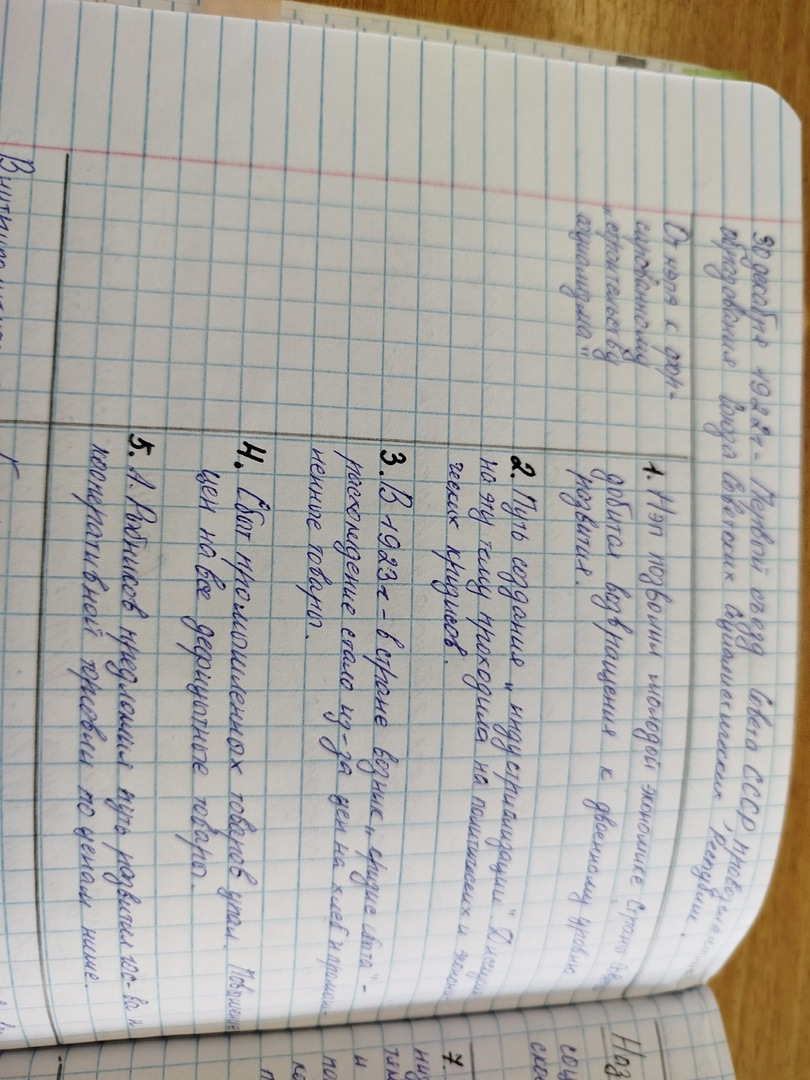 30 декабря 1922г - Первый съезд Совета СССР провозгласил
образования Союза Советских Социалистических Республик.
От нэпа к фор-
сированному
„строительству
социализма"
1. Нэп позволил молодой экономике страны
добится возвращения к двоенному уровню
развития.
2. Путь создания „индустриализации" Дискуссия
на эту тему проходила на политических и эконом
ческих кризисов.
3. В 1923г - в стране возник „кризис сбыта" -
расхождение стало из-за цен на хлеб и промыш-
ленные товары.
4. Сбыт промышленных товаров упал. Повышение
цен на все дефицитные товары.
5. А. предложил путь развития гос-ва и
кооперативной торговли по ценам ниже.
Наз
соц
7.
и